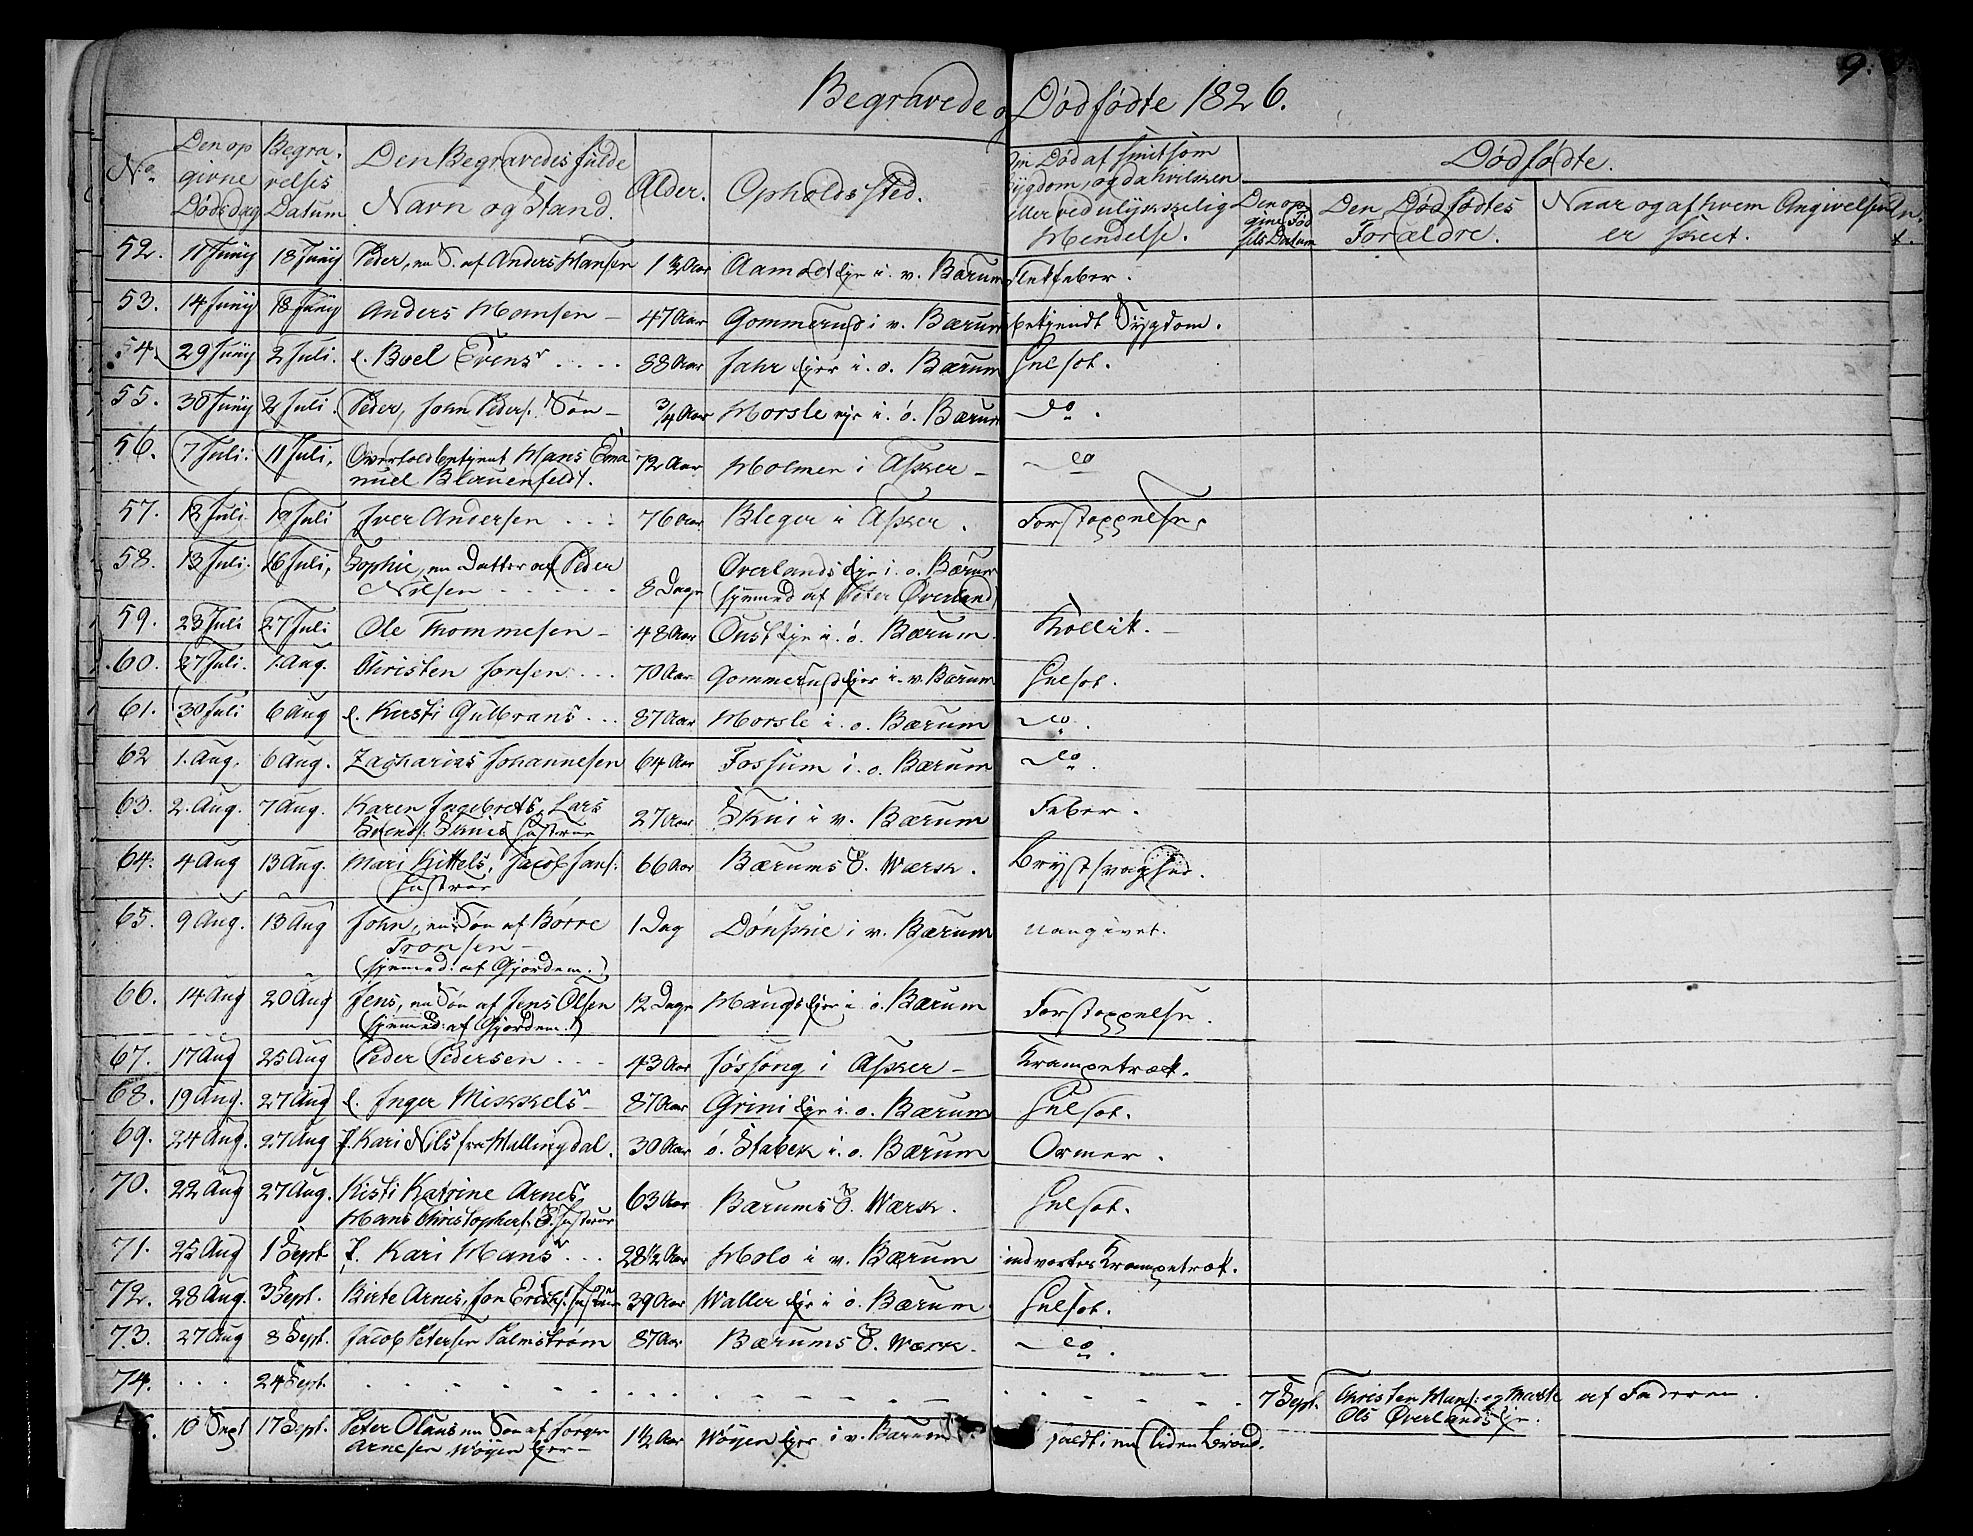 9.
Begravede og Dødfødte 1826.
No. Den opgivne Dødsdag Begravelses Datum Den Begravedes fulde Navn og Stand. Alder. Opholdssted. Om Død af smitsom Sygdom, og da hvilken eller ved ulykkelig Hendelse. Dødfødte.
Den opgivne Fødsels Datum Den Dødfødtes Forældre. Naar og af hvem Angivelsen er skeet.
52. 11 Juny 18 Juny Peder, en S. af Anders Hansen 1 ½ Aar Aamodt Eje i. v. Bærum
53. 14 Juny 18 Juny Anders Hansen – 47 Aar Gommerud i v. Bærum bekjendt Sygdom.
54. 29 Juny 2 Juli. e. Boel Evens 88 Aar Jahr Ejer i. o. Bærum Gulsot.
55. 30 Juny 2 Juli. Peder, John Peders. Søn – ¾ Aar Horsle eje i. ö. Bærum do.
56. 7 Juli. 11 Juli. Overtoldbetjent Hans Ema
nuel Blauenfeldt. 72 Aar Holmen i Asker – do
57. 12 Juli. 19 Juli Iver Andersen 76 Aar. Bleger i Asker. Forstoppelse.
58. 13 Juli. 16 Juli, Sophie, en Datter af Peder
Nilsen 8 Dage Øverlands Eje i. o. Bærum
(hjemmed af Peter Øverland)
59. 23 Juli 27 Juli Ole Thommesen – 48 Aar Oust Eje i. ö. Bærum. Kollik. –
60. 27 Juli. 1. Aug. Christen Jonsen 70 Aar Gommerud Ejer i. v. Bærum
61. 30 Juli 6 Aug e. Kirsti Gulbrans 87 Aar Horsle i. o. Bærum do.
62 1. Aug. 6 Aug. Zacharias Johannesen 64 Aar Fossum i. o. Bærum do.
63. 2. Aug. 7 Aug. Karen Ingebrets, Lars
Svends. Hustrue 27 Aar Skui i v. Bærum Feber.
64. 4 Aug 13 Aug. Mari Kittels, Jacob Jans.
Hustrue 66 Aar Bærums V. Wærk. Brystsvaghed.
65. 9 Aug. 13 Aug John, en Søn af Börre
Tronsen –
(hjemmed. af Gjordem.) 1 Dag Dönskie i v. Bærum uangivet.
66. 14 Aug 20 Aug Jens, en Søn af Jens Olsen
(hjemmed. af Gjordem.) 12 Dage Haugs Ejer i ö. Bærum Forstoppelse.
67. 17 Aug 25 Aug Peder Pedersen 43 Aar i Asker – Krampetræk.
68. 19 Aug. 27 Aug e. Inger Mikkels – 87 Aar Grini Eje i. o. Bærum Gulsot.
69. 24 Aug. 27 Aug P. Kari Nils fra Hallingdal. 30 Aar ö. Stabek i. o. Bærum Ormer.
70. 22 Aug 27 Aug. Kisti Katrine Arnes,
Hans Christophers. Hustrue 63 Aar Bærums V. Wærk. Gulsot.
71. 25 Aug 1 Sept P. Kari Hans 28 ½ Aar Holo i v. Bærum indvortes Krampetræk.
72. 28 Aug. 3 Sept. Birte Arnes, Jon Ericks. Hustrue 39 Aar Waller Eje i ö. Bærum Gulsot.
73. 27 Aug 8 Sept. Jacob Petersen Palmstrøm 87 Aar Bærums V. Værk. do.
74. 24 Sept. 7 Sept. Christen Hans. og Marte
Ols Øverlands Eje. af Faderen.
10 Sept 17 Sept. Peder Olaus en Søn af Jörgen
Arnesen Wøyen Ejer – 1 ½ Aar Wøyen Ejer i v. Bærum faldt i en liden Brønd.